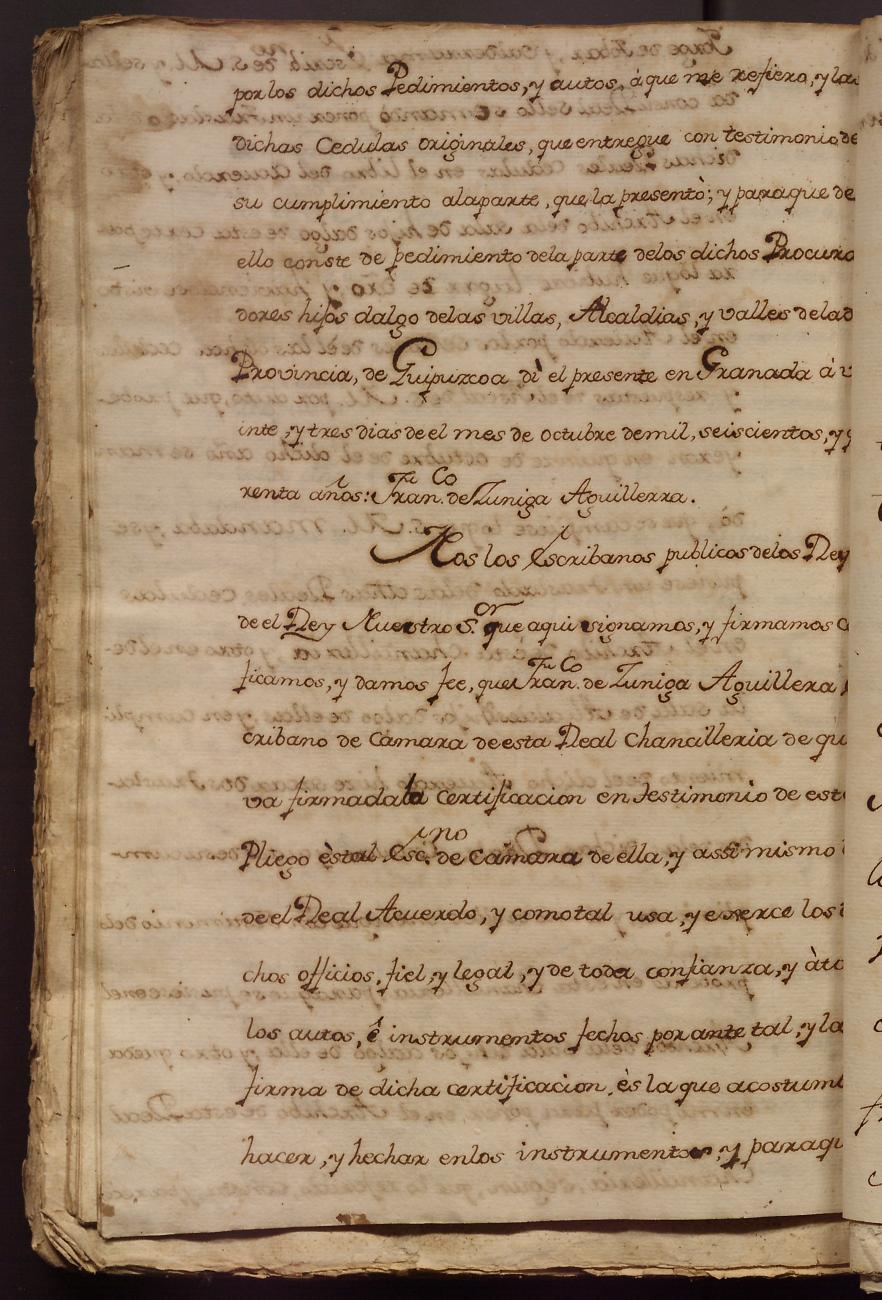 por los dichos Pedimientos, y autos, á que me refiero, y las
dichas Cedulas originales, que entregue con testimonio de
su cumplimiento ala parte, que la presentò; y para que de
ello conste de pedimiento dela parte delos dichos Procura
dores hijos dalgo delas villas, Alcaldias, y valles de la
Provincia, de Guipuzcoa dì el presente en Granada á v
inte, y tres dias de el mes de octubre de mil, seiscientos, y q
renta años: Fran.co de Zuniga Aguillerra.
Nos los Escribanos publicos delos Rey
de el Rey Nuestro S.or que aqui signamos, y firmamos
ficamos, y damos fee, que Fran.co de Zuniga Aguillera
cribano de Camara de esta Real Chancilleria de qu
va firmada la certificacion en testimonio de est
Pliego ès tal Esc.ino de Camara de ella, y assi mismo
de el Real Acuerdo, y como tal usa, y exerce los
chos officios, fiel, y legal, y de toda confianza, y à to
los autos, ê instrumentos fechos por ante tal, y la
firma de dicha certificacion, ès la que acostum
hacer, y hechar en los instrumentos, y paraqu